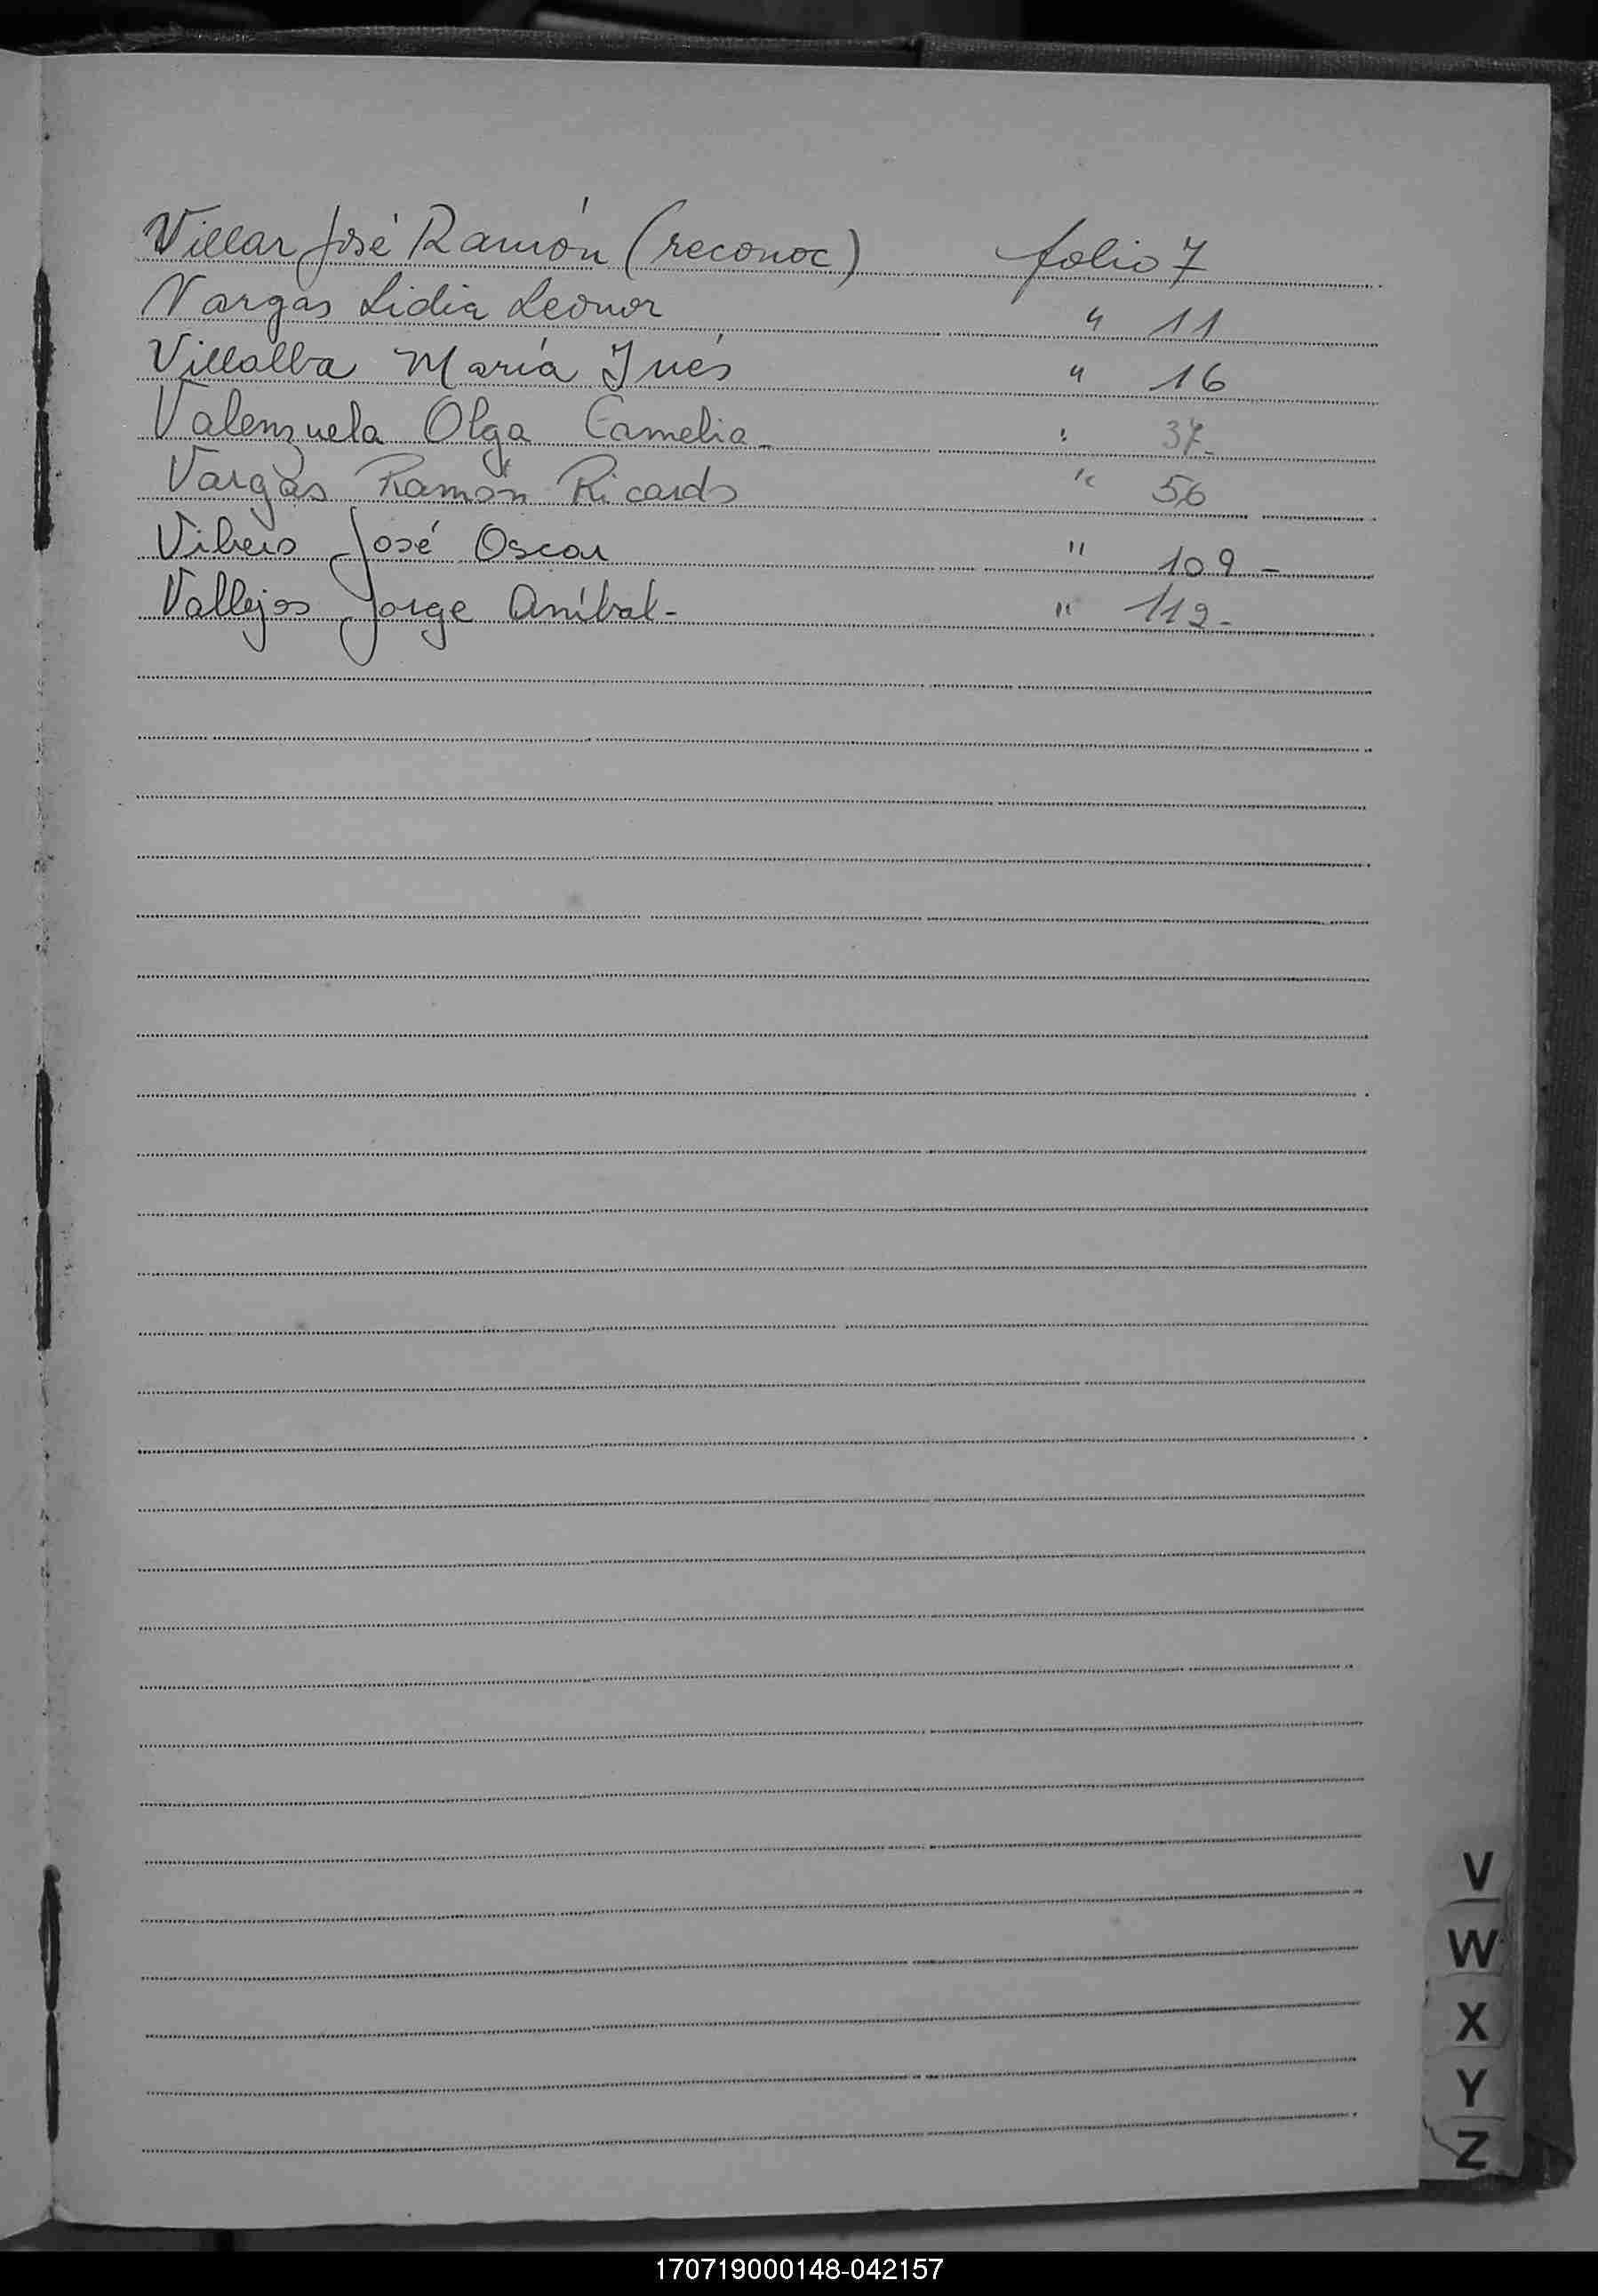 Villar José Ramón (reconoc) folio 7
Vargas Lidia Leonor " 11
Villalba María Inés " 16
Valenzuela Olga Camelia - : 37 -
Vargas Ramón Ricardo " 56
José Oscar " 109 -
Vallejos Jorge Aníbal - " 112 -
V
W
X
Y
Z
170719000148-042157